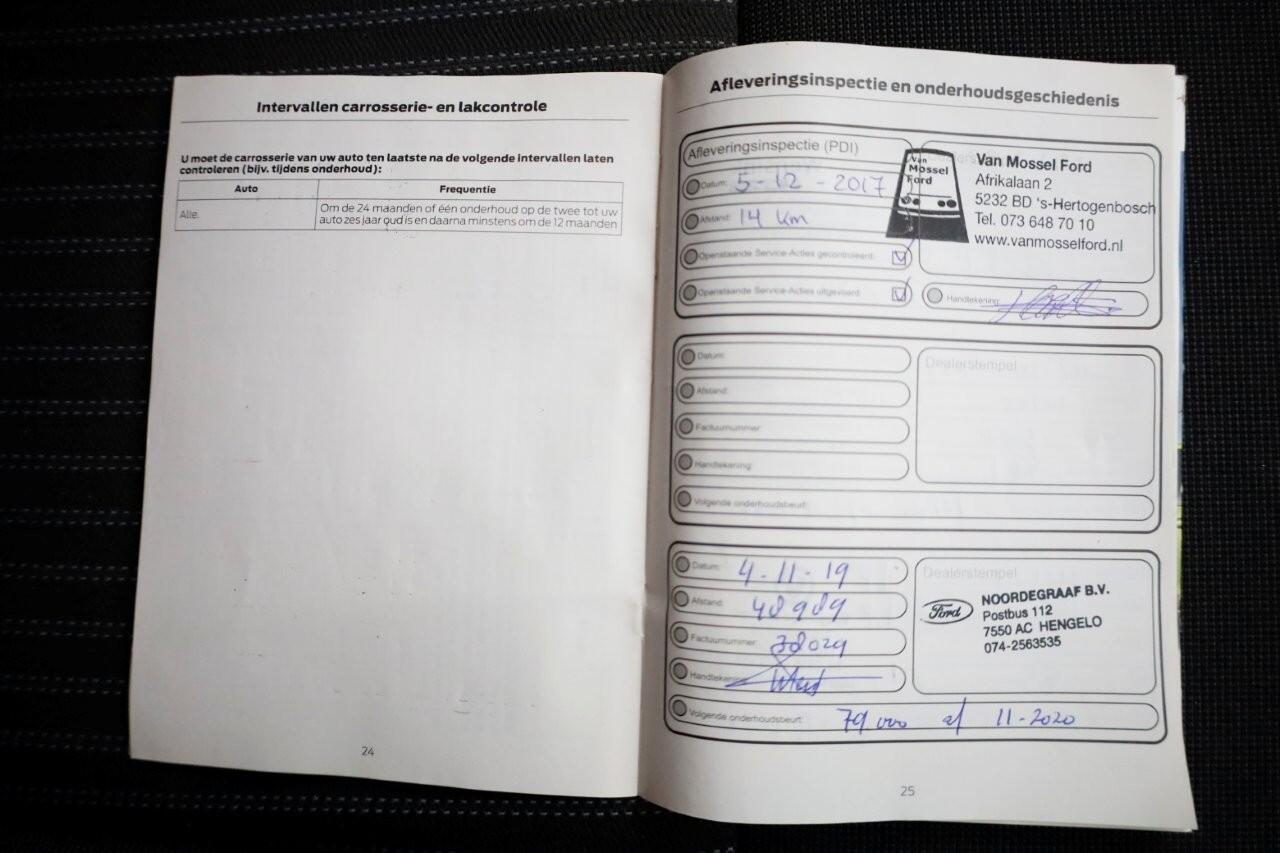 Intervallen carrosserie- en lakcontrole
U moet de carrosserie van uw auto ten laatste na de volgende intervallen laten
controleren (bijv. tijdens onderhoud):
Auto
Frequentie
Alle.
Om de 24 maanden of één onderhoud op de twee tot uw
auto zes jaar oud is en daarna minstens om de 12 maanden
24
Afleveringsinspectie en onderhoudsgeschiedenis
Afleveringsinspectie (PDI)
Datum: 5-12-2017
Afstand: 14 km
Openstaande Service-Acties gecontroleerd:
Openstaande Service-Acties uitgevoerd:
Van
Mossel
Ford
Van Mossel Ford
Afrikalaan 2
5232 BD 's-Hertogenbosch
Tel. 073 648 70 10
www.vanmosselford.nl
Handtekening:
Datum:
Afstand:
Factuurnummer:
Handtekening:
Volgende onderhoudsbeurt:
Dealerstempel
Datum: 4-11-19
Afstand: 48989
Factuurnummer: 78029
Handtekening:
Volgende onderhoudsbeurt: 79000 of 11-2020
Dealerstempel
Ford
NOORDEGRAAF B.V.
Postbus 112
7550 AC HENGELO
074-2563535
25